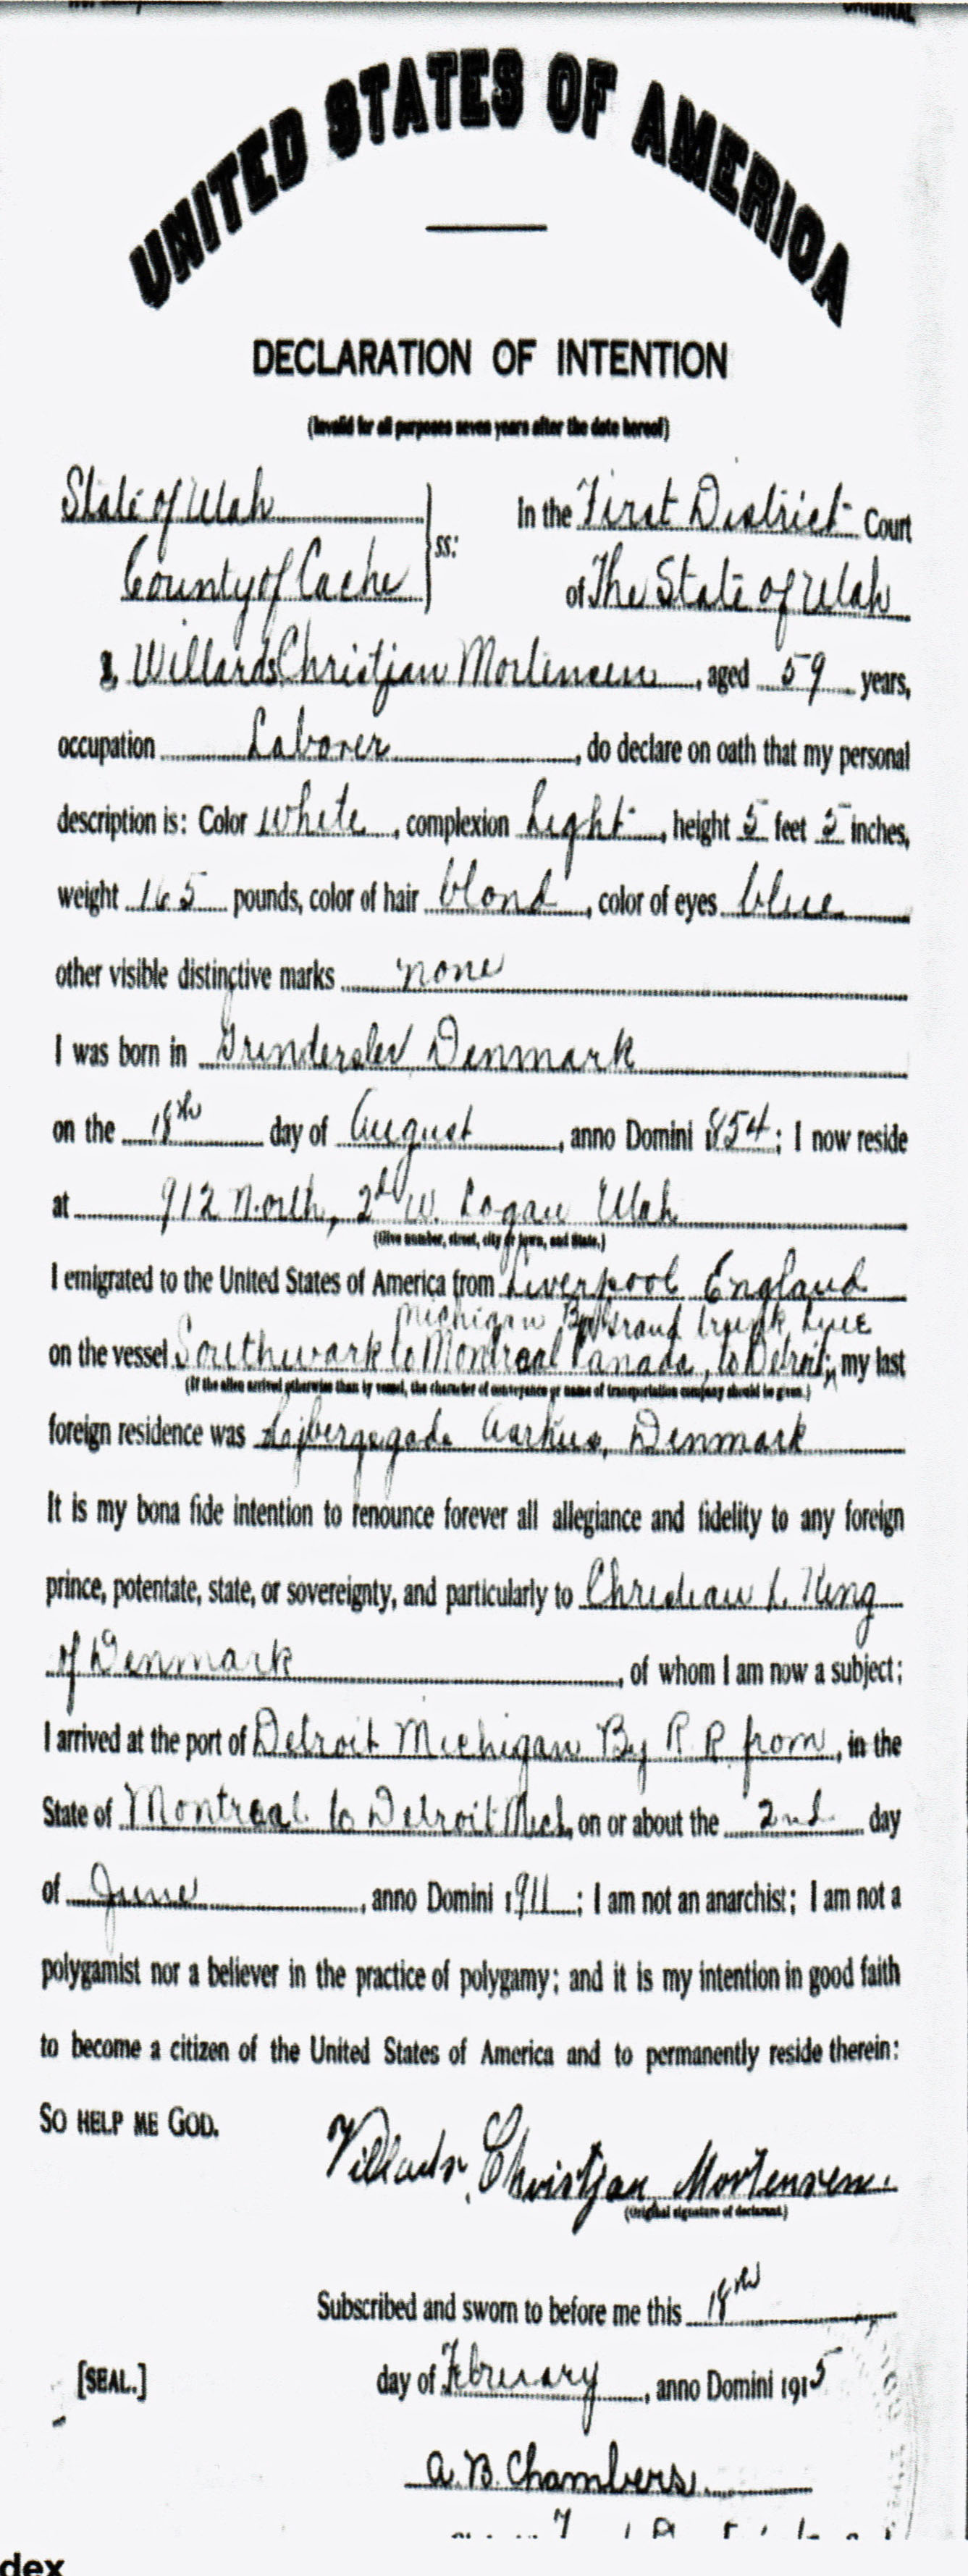 ORIGINAL
UNITED STATES OF AMERICA
DECLARATION OF INTENTION
(Invalid for all purposes seven years after the date hereof)
State of Utah
County of Cache
ss:
In the First District Court
of The State of Utah
I, Willards Christjan Mortensen, aged 59 years,
occupation Laborer, do declare on oath that my personal
description is: Color white, complexion Light, height 5 feet 5 inches,
weight 165 pounds, color of hair blond, color of eyes blue
other visible distinctive marks none
I was born in Grinderslev Denmark
on the 18th day of August, anno Domini 1854; I now reside
at 912 North, 2d W. Logan Utah
(Give number, street, city or town, and State.)
I emigrated to the United States of America from Liverpool England
Michigan By Grand Trunk Line
on the vessel Southwark to Montreal Canada, to Detroit; my last
(If the alien arrived otherwise than by vessel, the character of conveyance or name of transportation company should be given.)
foreign residence was Aarhus, Denmark
It is my bona fide intention to renounce forever all allegiance and fidelity to any foreign
prince, potentate, state, or sovereignty, and particularly to Christian King
of Denmark, of whom I am now a subject;
I arrived at the port of Detroit Michigan By R R from, in the
State of Montreal to Detroit Mich, on or about the 2nd day
of June, anno Domini 1911; I am not an anarchist; I am not a
polygamist nor a believer in the practice of polygamy; and it is my intention in good faith
to become a citizen of the United States of America and to permanently reside therein:
SO HELP ME GOD.
Villads Christjan Mortensen.
(Original signature of declarant.)
Subscribed and sworn to before me this 18th
[SEAL.]
day of February, anno Domini 1915
A. B. Chambers
dex